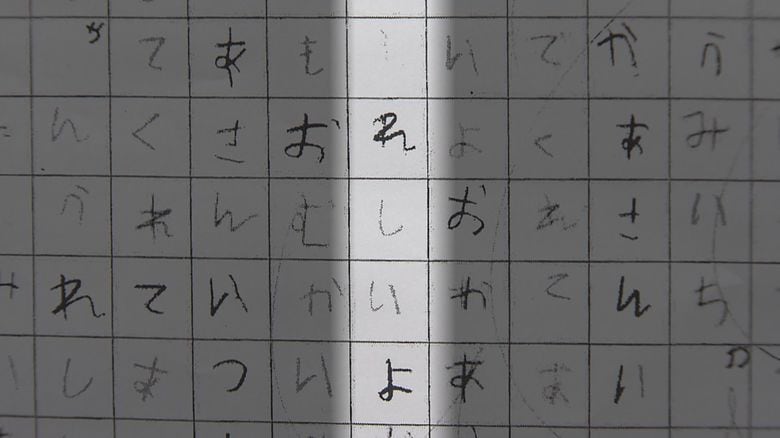 うみいちっ
かあさんい
でくれてあ
いよおかあ
れしいよ
もおむかい
あさんいつ
てくれてあ
んうれし